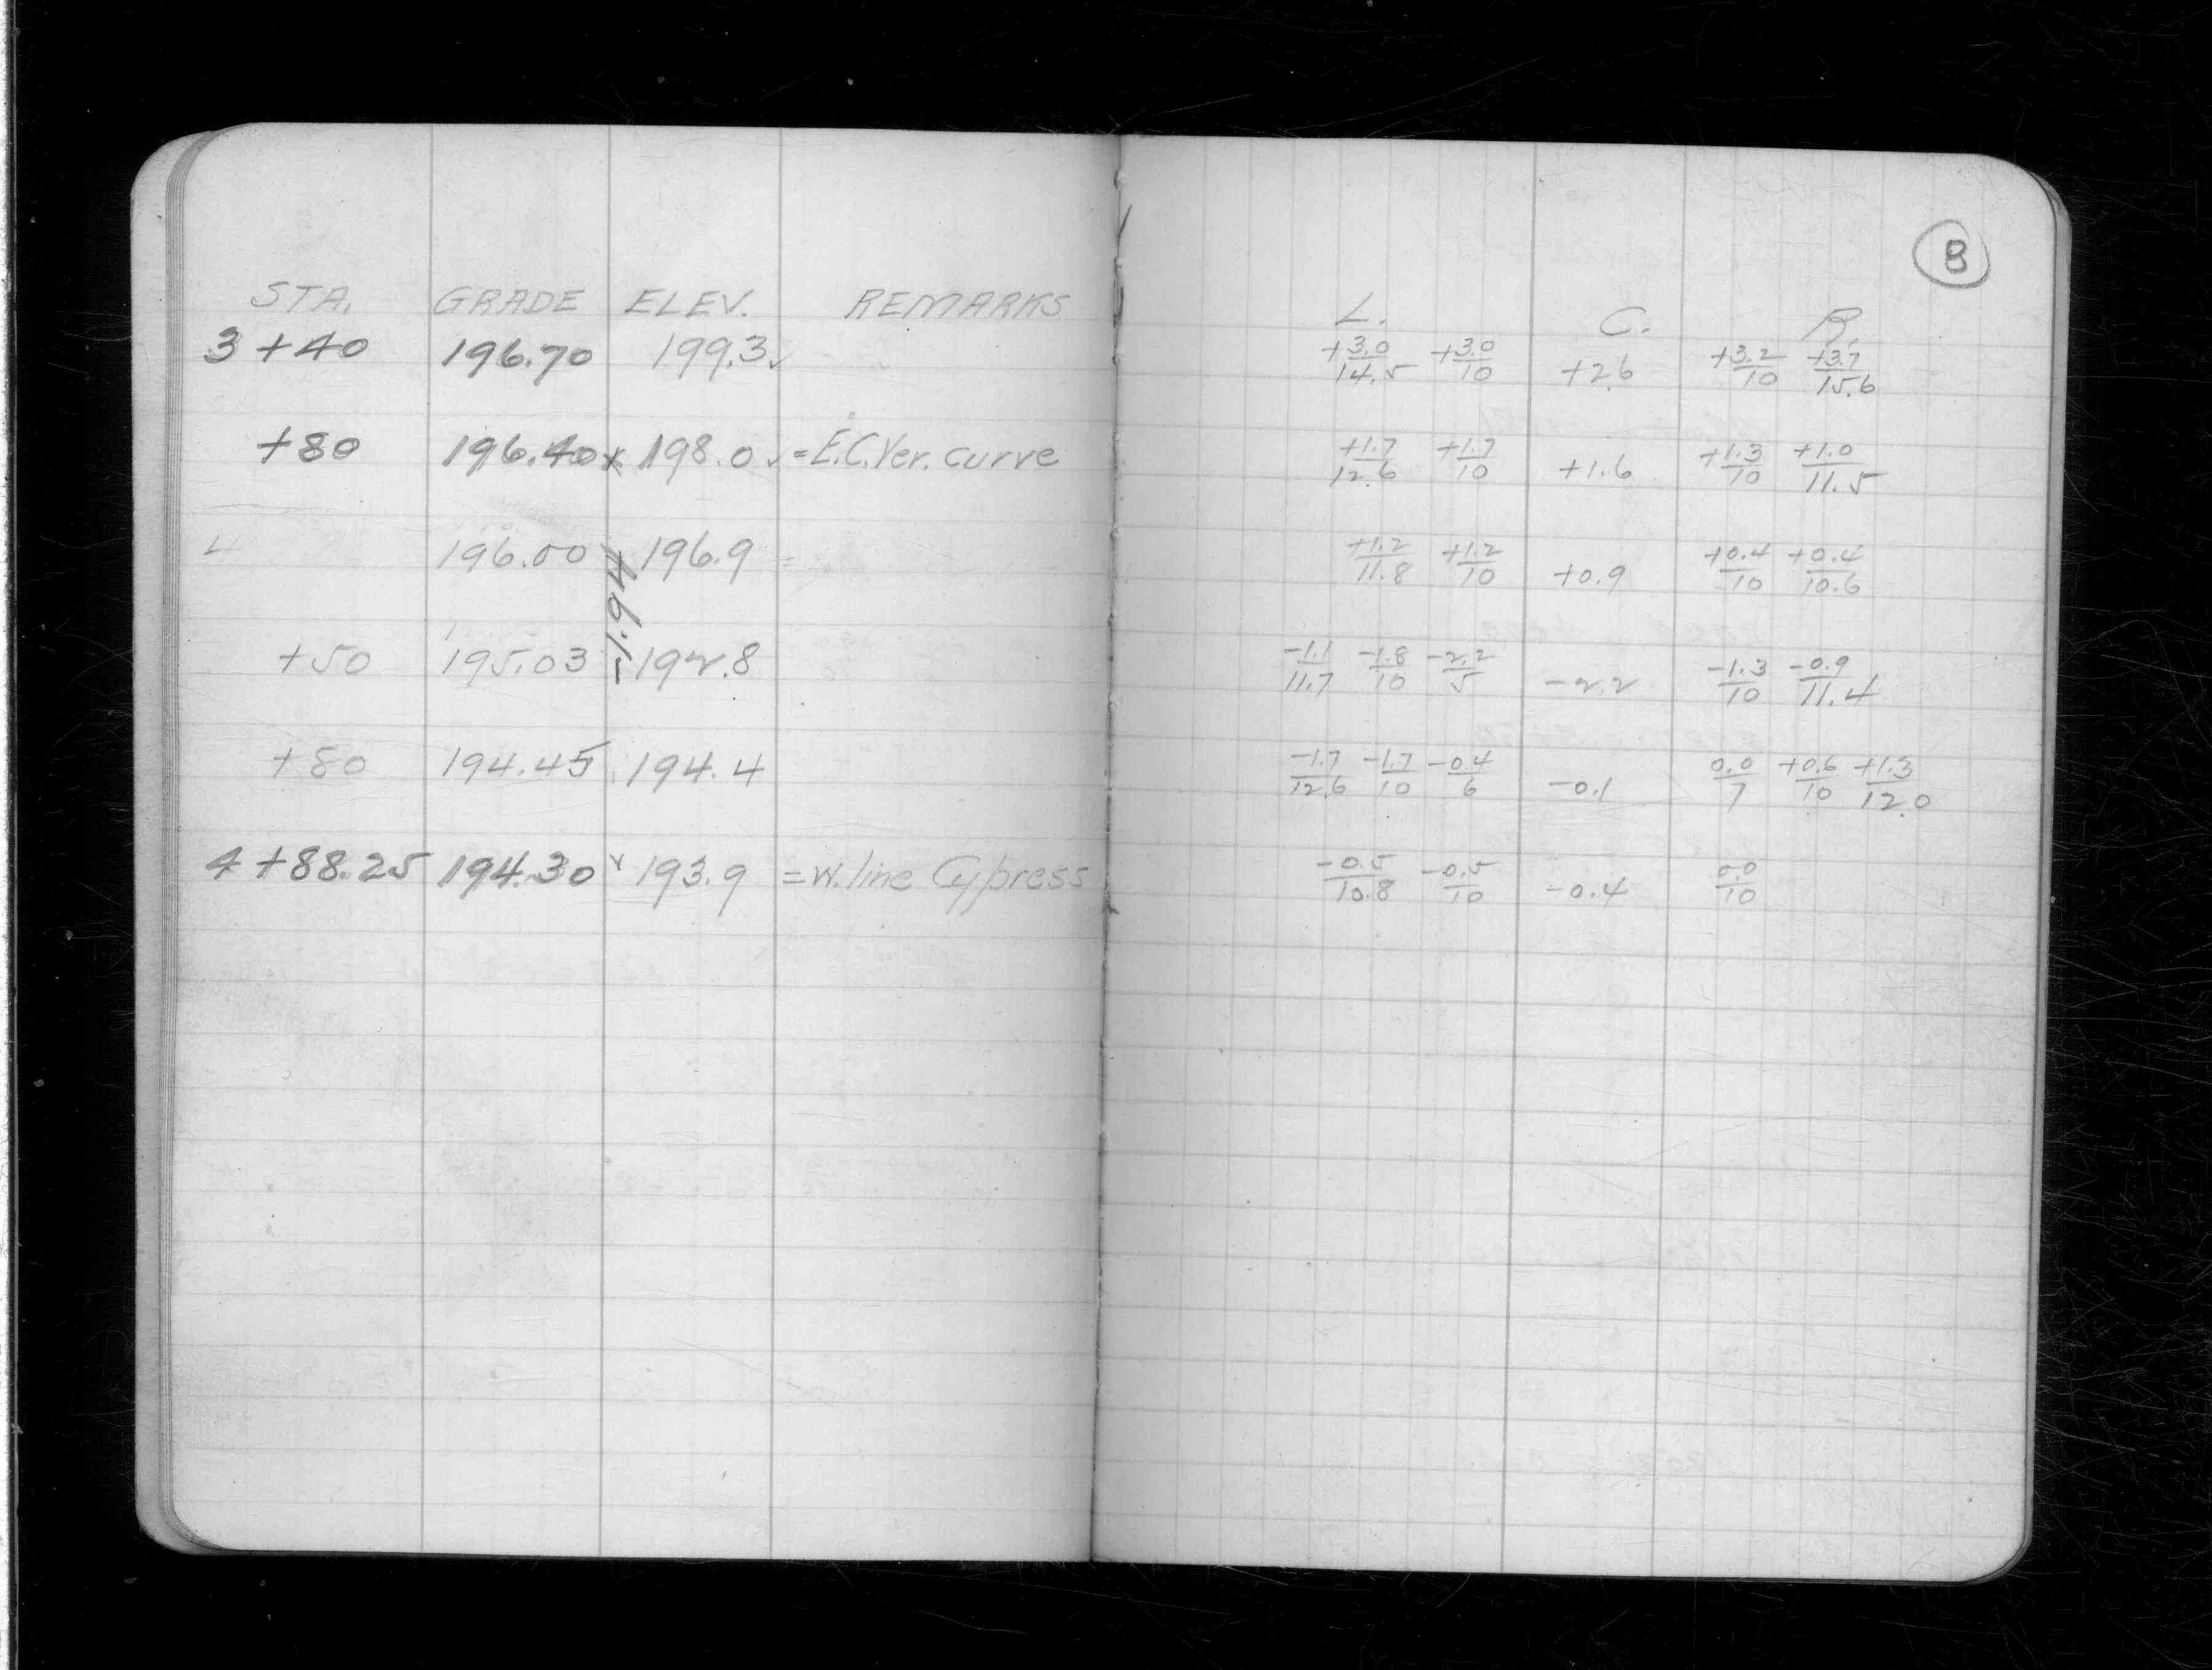 B
STA. GRADE ELEV. REMARKS L. C. R.
3+40 196.70 199.3✓ +3.0/14.5 +3.0/10 +2.6 +3.2/10 +3.7/15.6
+80 196.40x 198.0✓ =E.C.Ver. curve +1.7/12.6 +1.7/10 +1.6 +1.3/10 +1.0/11.5
4 196.00 196.9 = +1.2/11.8 +1.2/10 +0.9 +0.4/10 +0.4/10.6
-1.94
+50 195.03 192.8 -1.1/11.7 -1.8/10 -2.2/5 -2.2 -1.3/10 -0.9/11.4
+80 194.45 194.4 -1.7/12.6 -1.7/10 -0.4/6 -0.1 0.0/7 +0.6/10 +1.3/12.0
4+88.25 194.30 x 193.9 =W. line Cypress -0.5/10.8 -0.5/10 -0.4 0.0/10